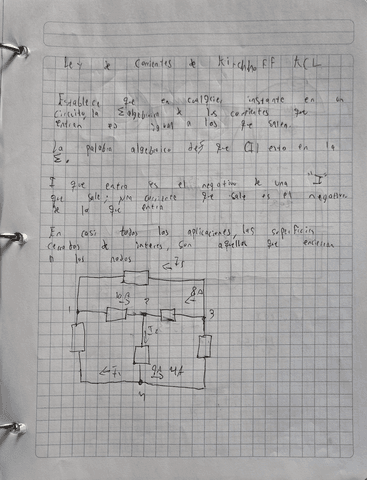 Ley de corrientes de Kirchhoff KCL
Establece que en cualquier instante en un
circuito, la Σ algebraica de las corrientes que
entran es igual a las que salen.
La palabra algebraica que esto en la
Σ.
I que entra es el negativo de una "I"
que sale; que sale es el negativo
de la que entra
En casi todas las aplicaciones, las superficies
cerradas de interes, son aquellas que encierran
a los nodos
8A
1
2
3
4A
4